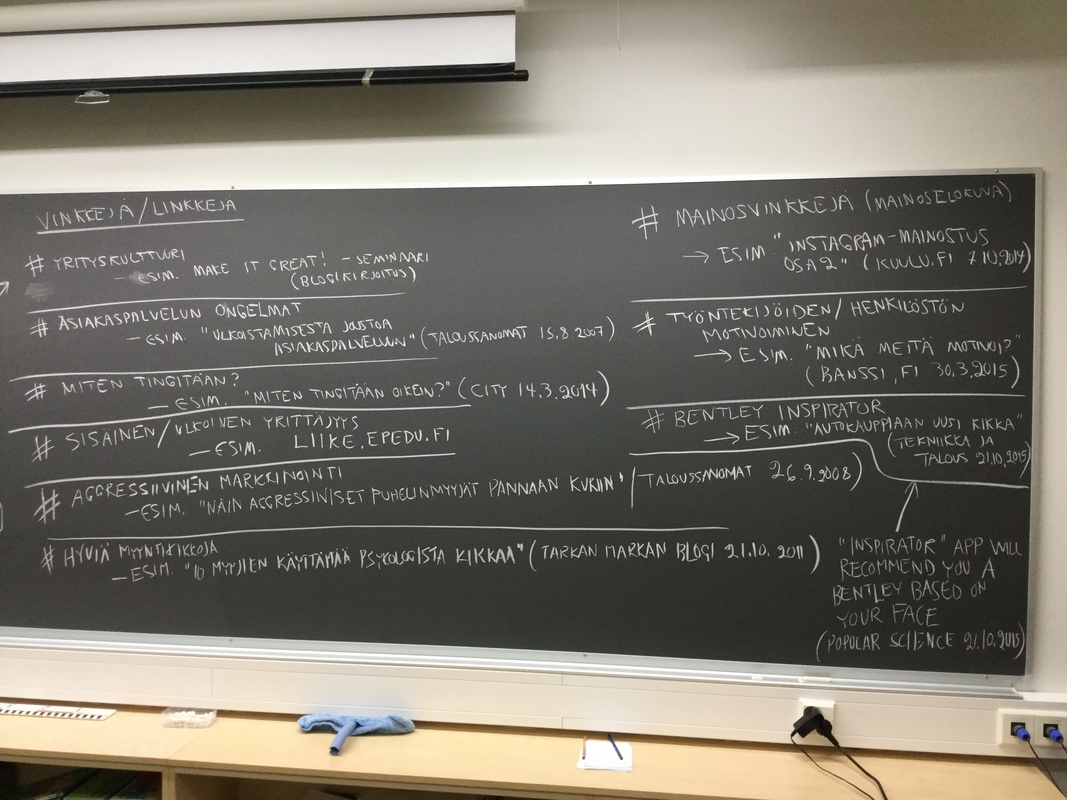 VINKKEJÄ/LINKKEJÄ
# YRITYSKULTTUURI
– ESIM. MAKE IT GREAT! -SEMINAARI
(BLOGIKIRJOITUS)
# ASIAKASPALVELUN ONGELMAT
– ESIM. "ULKOISTAMISESTA JOUSTOA
ASIAKASPALVELUUN" (TALOUSSANOMAT 15.8.2007)
# MITEN TINGITÄÄN?
– ESIM. "MITEN TINGITÄÄN OIKEIN?" (CITY 14.3.2014)
# SISÄINEN/ULKOINEN YRITTÄJYYS
– ESIM. LIIKE.EPEDU.FI
# AGGRESSIIVINEN MARKKINOINTI
– ESIM. "NÄIN AGGRESSIIVISET PUHELINMYYJÄT PANNAAN KURIIN" (TALOUSSANOMAT 26.9.2008)
# HYVIÄ MYYNTIKIKKOJA
– ESIM. "10 MYYJIEN KÄYTTÄMÄÄ PSYKOLOGISTA KIKKAA" (TARKAN MARKAN BLOGI 21.10.2011)
# MAINOSVINKKEJÄ (MAINOSELOKUVA)
→ ESIM. "INSTAGRAM-MAINOSTUS
OSA 2" (KUULU.FI 7.10.2014)
# TYÖNTEKIJÖIDEN/HENKILÖSTÖN
MOTIVOIMINEN
→ ESIM. "MIKÄ MEITÄ MOTIVOI?"
(BANSSI.FI 30.3.2015)
# BENTLEY INSPIRATOR
→ ESIM. "AUTOKAUPPIAAN UUSI KIKKA"
(TEKNIIKKA JA
TALOUS 21.10.2015)
"INSPIRATOR" APP WILL
RECOMMEND YOU A
BENTLEY BASED ON
YOUR FACE
(POPULAR SCIENCE 21.10.2015)